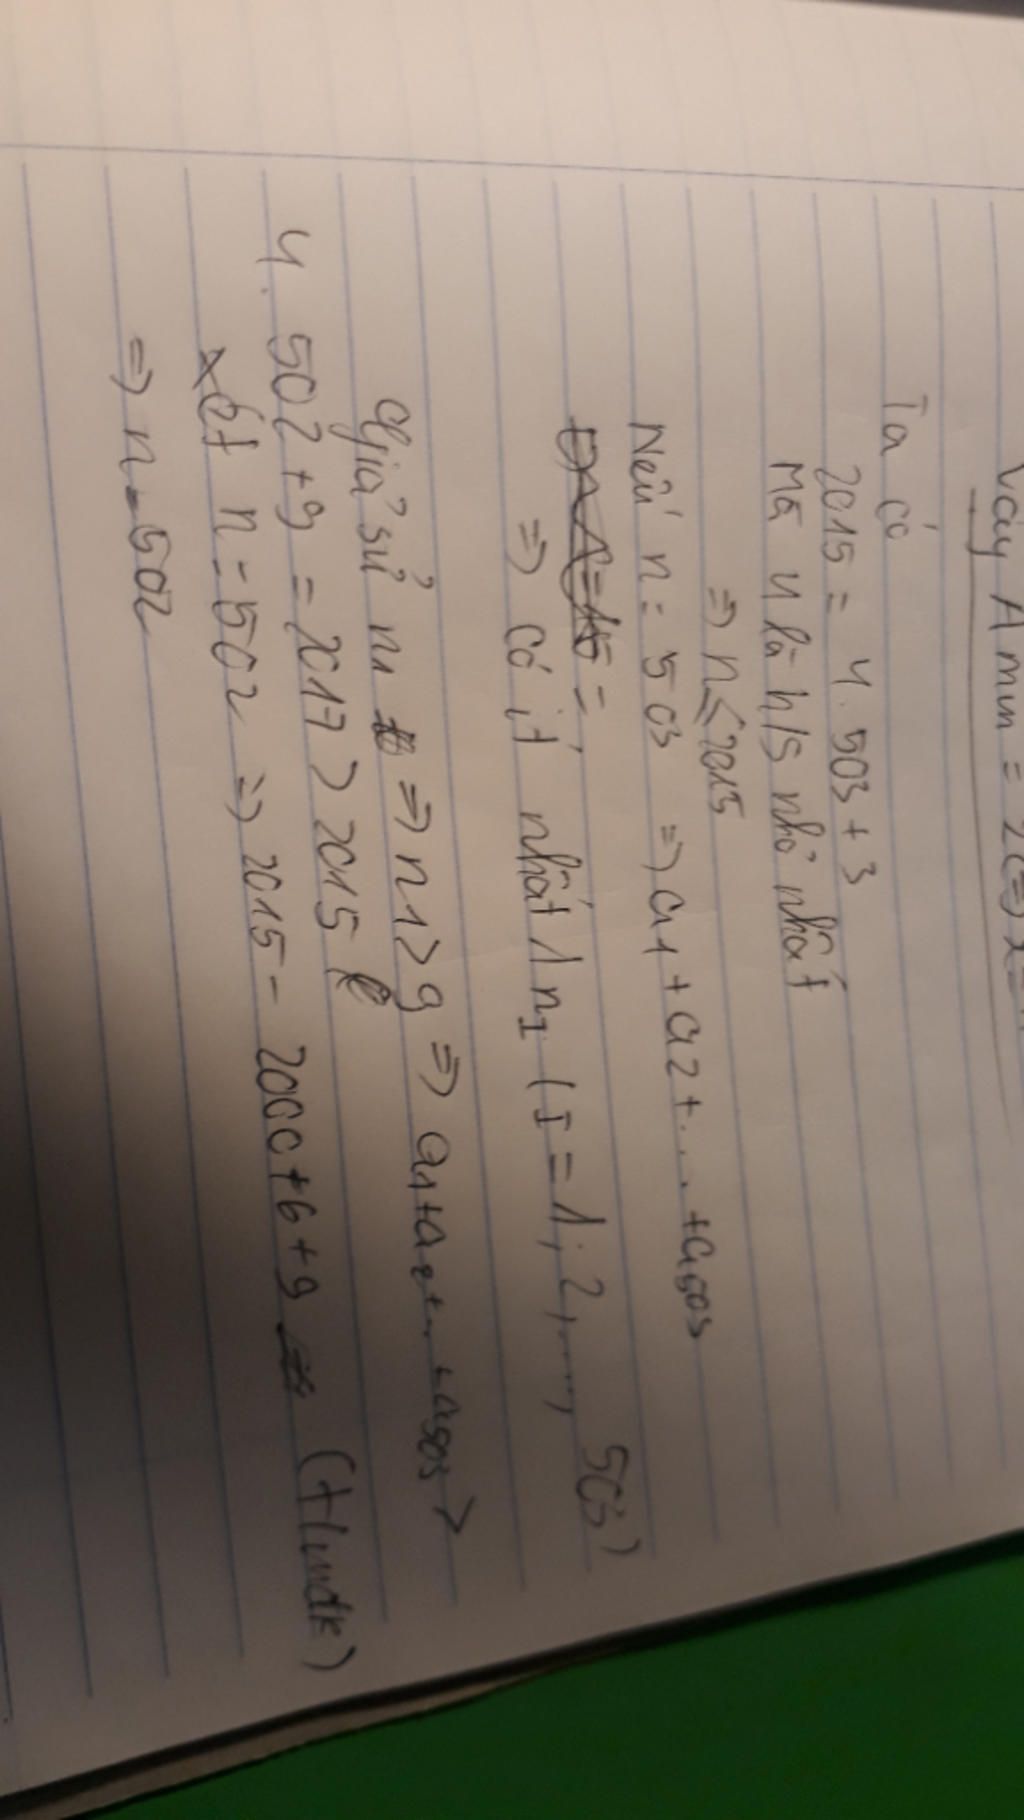 Vậy A min = 2 (=) x =
Ta có
2015 = 4. 503 + 3
Mà 4 là h/s nhỏ nhất
=> n ≤ 2015
Nếu n = 503 => a1 + a2 + ... + a503
=> có ít nhất 1 nI (I = 1; 2, ...., 503)
Giả sử n1 => n1 > 9 => a1 + a2 + ... + a503 >
4. 502 + 9 = 2017 > 2015
xét n = 502 => 2015 = 2000 + 6 + 9 (t/mđk)
=> n = 502